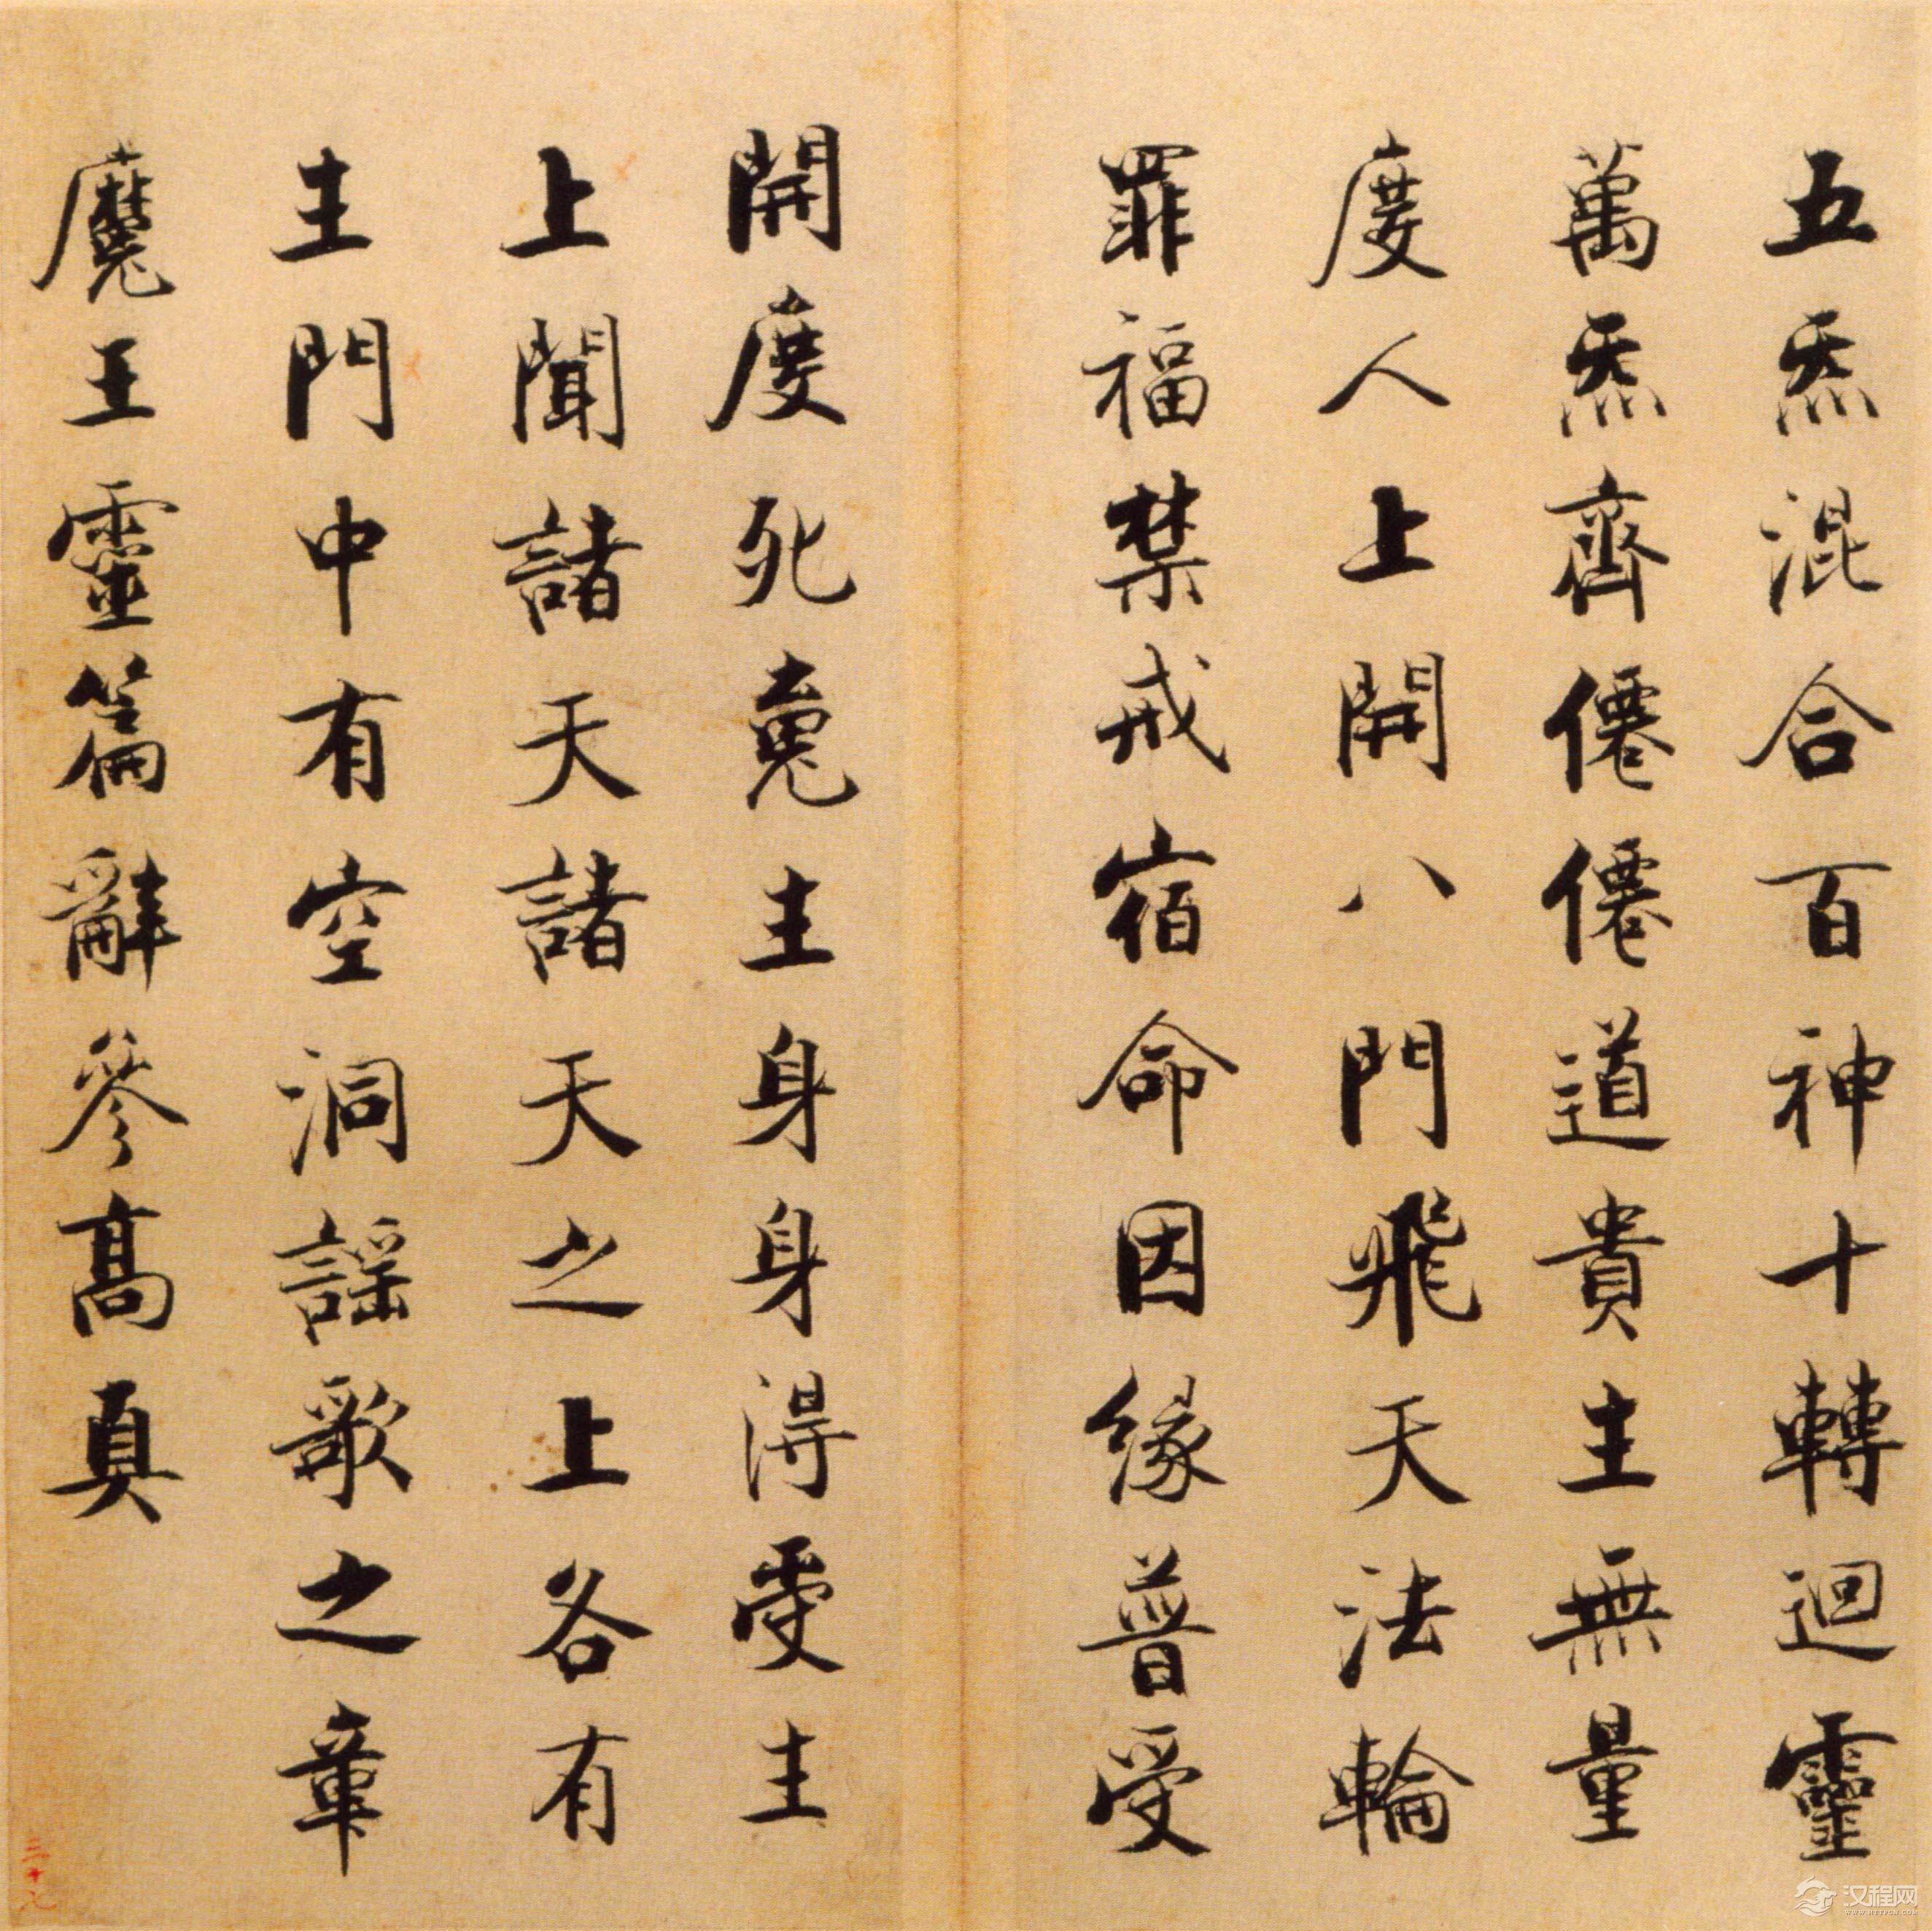 五炁混合百神十轉迴靈
萬炁齊僊僊道貴生無量
度人上開八門飛天法輪
罪福禁戒宿命因緣普受
開度死魂生身身得受生
上聞諸天諸天之上各有
生門中有空洞謠歌之章
魔王靈篇辭參高真
汉程网
WWW.HTTPCN.COM